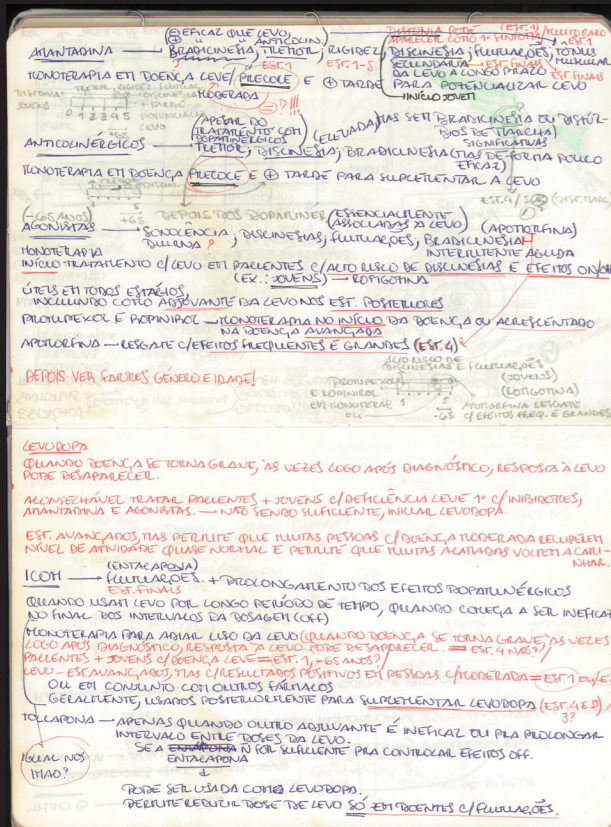 (+) EFICAZ QUE LEVO,
ANTICOLIN.
DISTONIA PODE (EST. 1)
APARECER COMO 1º SINTOMA
AMANTADINA → BRADICINESIA, TREMOR, RIGIDEZ, DISCINESIA, FLUTUAÇÕES, TÓNUS MUSCULAR
EST. 1 EST. 1-5 SECUNDÁRIA → EST. FINAIS
DA LEVO A LONGO PRAZO EST. FINAIS
MONOTERAPIA EM DOENÇA LEVE/PRECOCE E (+) TARDE PARA POTENCIALIZAR LEVO
MODERADA INÍCIO JOVEM
TREMOR, RIGIDEZ
JOVENS
0 1 2 3 4 5
LEVO
+65
APESAR DO
TRATAMENTO COM
DOPAMINÉRGICOS
(ELEVADA) MAS SEM BRADICINESIA OU DISTÚR-
BIOS DE MARCHA
ANTICOLINÉRGICOS → TREMOR, DISCINESIA, BRADICINESIA (MAS DE FORMA POUCO
SIGNIFICATIVAS
EFICAZ)
MONOTERAPIA EM DOENÇA PRECOCE E (+) TARDE PARA SUPLEMENTAR A LEVO
(-65 ANOS) +65 DEPOIS DOS (ESSENCIALMENTE
ASSOCIADAS À LEVO) (APOMORFINA)
AGONISTAS → SONOLÊNCIA, DISCINESIAS, FLUTUAÇÕES, BRADICINESIA
DIURNA ? INTERMITENTE AGUDA
MONOTERAPIA
INÍCIO TRATAMENTO C/LEVO EM PACIENTES C/ALTO RISCO DE DISCINESIAS E EFEITOS ON/OFF
(EX.: JOVENS) → ROTIGOTINA
ÚTEIS EM TODOS ESTÁGIOS,
INCLUINDO COMO ADJUVANTE DA LEVO NOS EST. POSTERIORES
PRAMIPEXOL E ROPINIROL → MONOTERAPIA NO INÍCIO DA DOENÇA OU ACRESCENTADO
NA DOENÇA AVANÇADA
APOMORFINA → RESGATE C/EFEITOS FREQUENTES E GRANDES (EST. 4)
ALTO RISCO DE
DISCINESIAS E FLUTUAÇÕES
DEPOIS VER FATORES GÉNERO E IDADE!
PRAMIPEXOL (JOVENS)
E ROPINIROL (ROTIGOTINA)
EM MONOTERAP. 1 5 APOMORFINA RESGATE
OU -65 C/EFEITOS FREQ. E GRANDES
LEVODOPA
QUANDO DOENÇA SE TORNA GRAVE, ÀS VEZES LOGO APÓS DIAGNÓSTICO, RESPOSTA À LEVO
PODE DESAPARECER.
ACONSELHÁVEL TRATAR PACIENTES + JOVENS C/DEFICIÊNCIA LEVE 1º C/INIBIDORES,
AMANTADINA E AGONISTAS. → NÃO SENDO SUFICIENTE, INICIAR LEVODOPA.
EST. AVANÇADOS, MAS PERMITE QUE MUITAS PESSOAS C/DOENÇA MODERADA RECUPEREM
NÍVEL DE ATIVIDADE QUASE NORMAL E PERMITE QUE MUITAS ACAMADAS VOLTEM A CAMI-
NHAR.
(ENTACAPONA)
ICOM → FLUTUAÇÕES. + PROLONGAMENTO DOS EFEITOS DOPAMINÉRGICOS
EST. FINAIS
QUANDO USAM LEVO POR LONGO PERÍODO DE TEMPO, QUANDO COMEÇA A SER INEFICAZ
NO FINAL DOS INTERVALOS DA DOSAGEM (OFF)
MONOTERAPIA PARA ADIAR USO DA LEVO (QUANDO DOENÇA SE TORNA GRAVE, ÀS VEZES
LOGO APÓS DIAGNÓSTICO, RESPOSTA À LEVO PODE DESAPARECER. = EST. 4 NÃO?/
PACIENTES + JOVENS C/DOENÇA LEVE = EST. 1, -65 ANOS?/
LEVO - EST. AVANÇADOS, MAS C/RESULTADOS POSITIVOS EM PESSOAS C/MODERADA = EST. 1 OU/E
OU EM CONJUNTO COM OUTROS FÁRMACOS
GERALMENTE, USADOS POSTERIORMENTE PARA SUPLEMENTAR LEVODOPA (EST. 4 E 5)
3?
TOLCAPONA → APENAS QUANDO OUTRO ADJUVANTE É INEFICAZ OU PRA PROLONGAR
INTERVALO ENTRE DOSES DA LEVO.
IGUAL NOS
IMAO?
SE A ENTAPONA N FOR SUFICIENTE PRA CONTROLAR EFEITOS OFF.
ENTACAPONA
PODE SER USADA COM A LEVODOPA.
PERMITE REDUZIR DOSE DE LEVO SÓ EM DOENTES C/FLUTUAÇÕES.